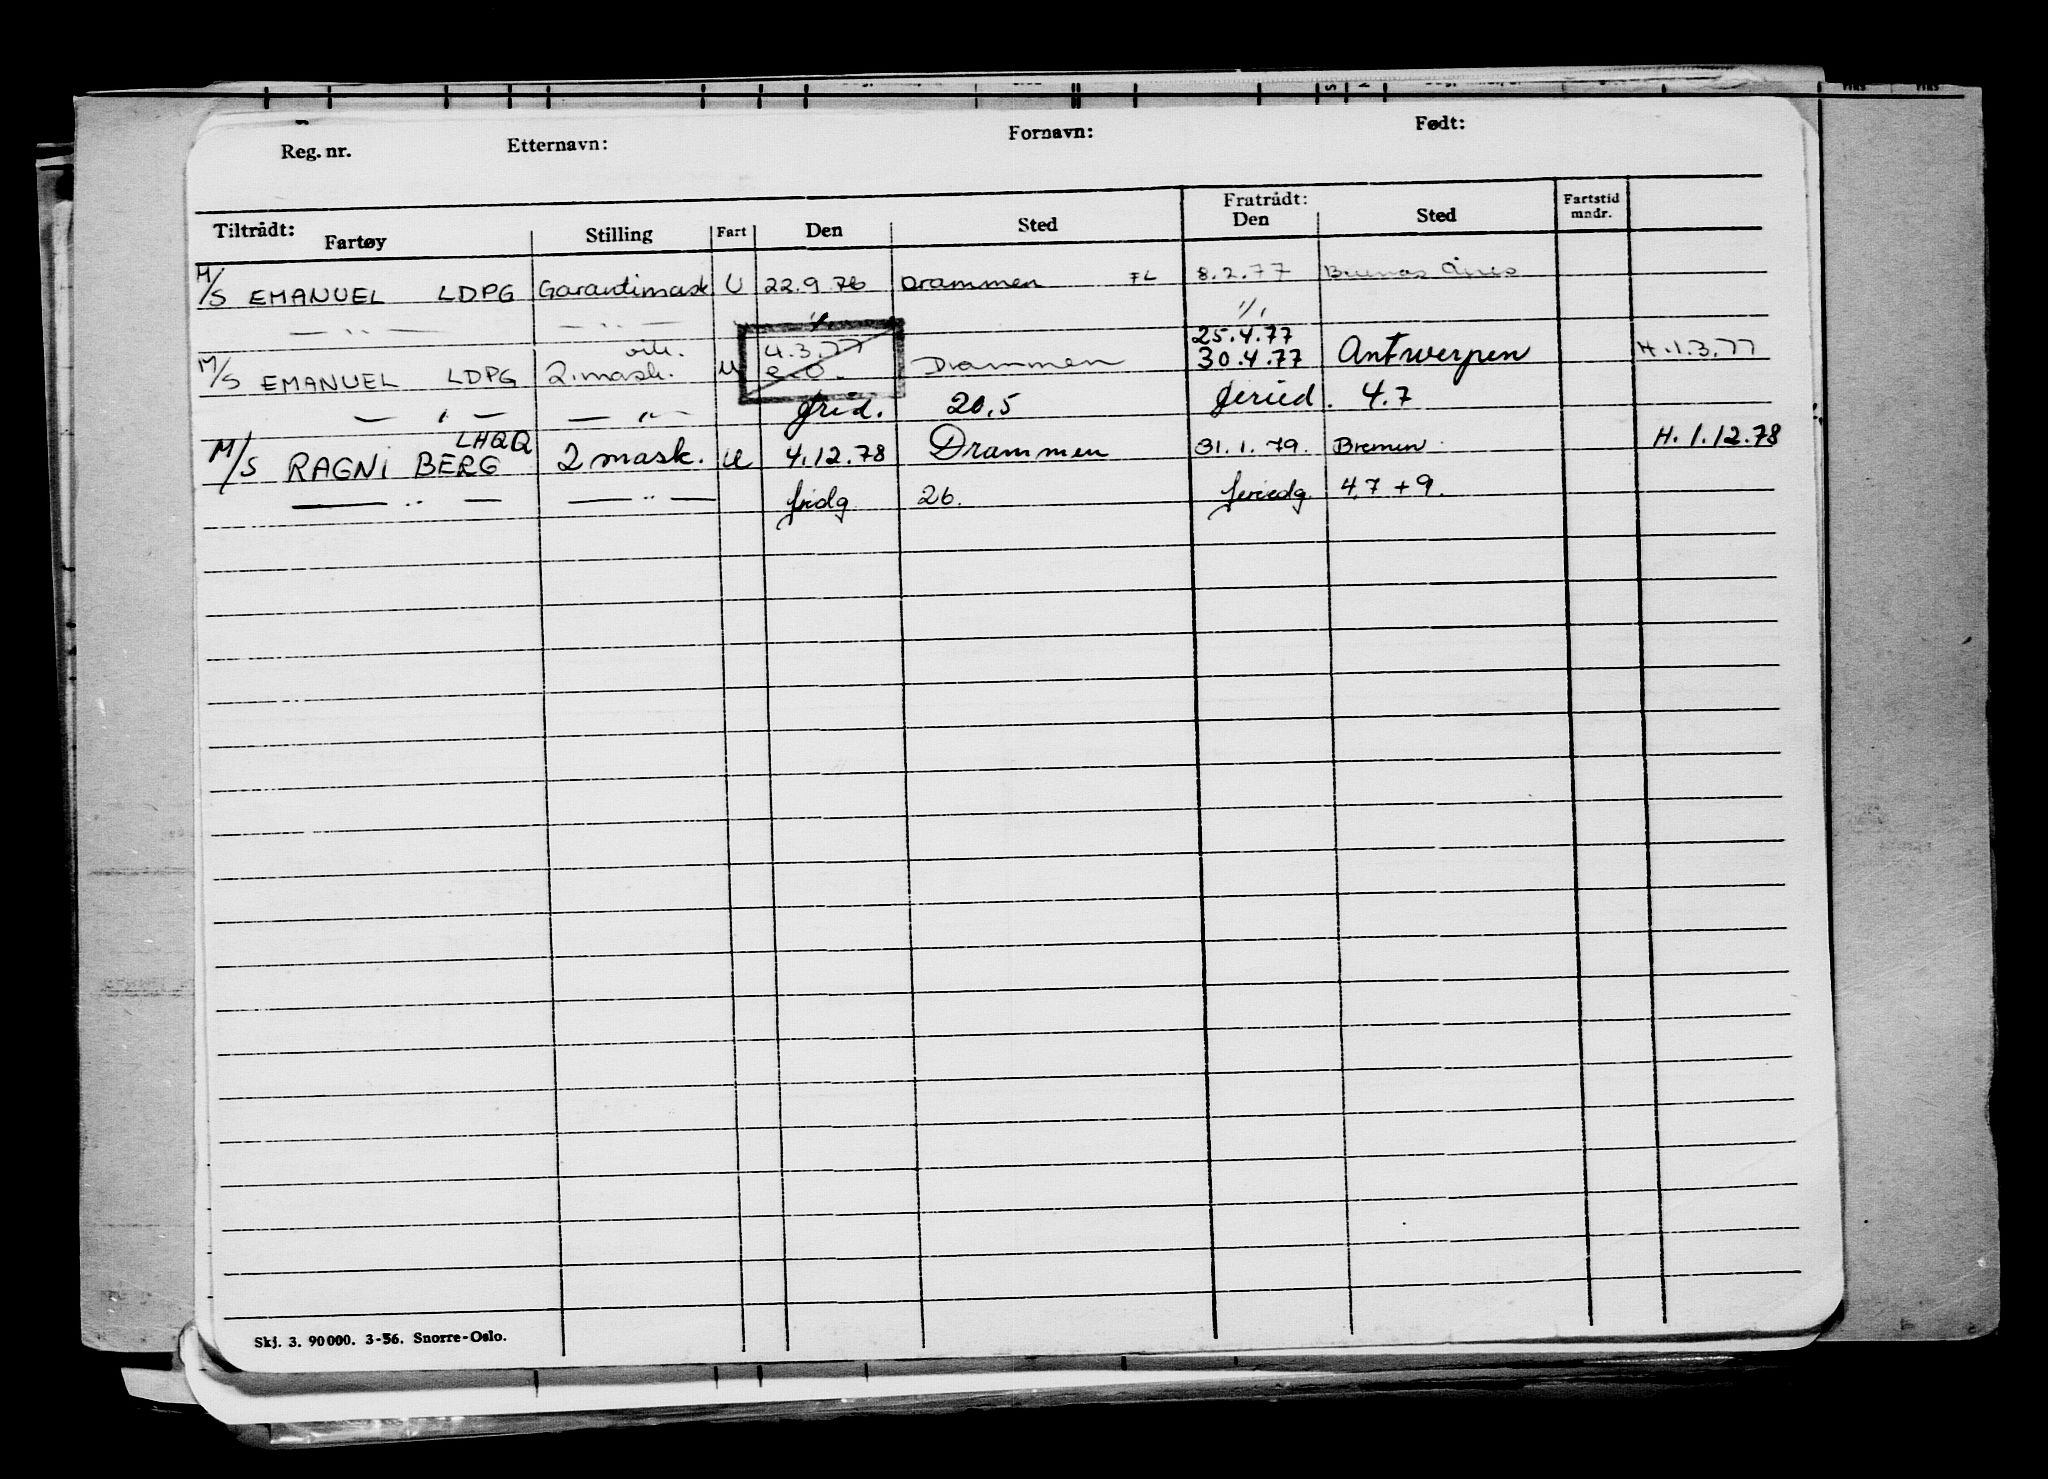 Reg. nr. Etternavn: Fornavn: Født:
Tiltrådt: Fratrådt:
Fartøy Stilling Fart Den Sted Den Sted Fartstid mndr.
M/S EMANUEL LDPG Garantimask U 22.9.76 Drammen FL 8.2.77 Buenos Aires
— " — — " — 25.4.77
M/S EMANUEL LDPG vik. 2.mask. U 4.3.77 e.o. Drammen 30.4.77 Antwerpen H.1.3.77
— " — — " — frid. 20,5 feried. 4.7
M/S RAGNI BERG LHQQ 2 mask. U 4.12.78 Drammen 31.1.79. Bremen H.1.12.78
— " — — " — fridg. 26. feriedg. 4,7 + 9.
Skj. 3. 90000. 3-56. Snorre-Oslo.